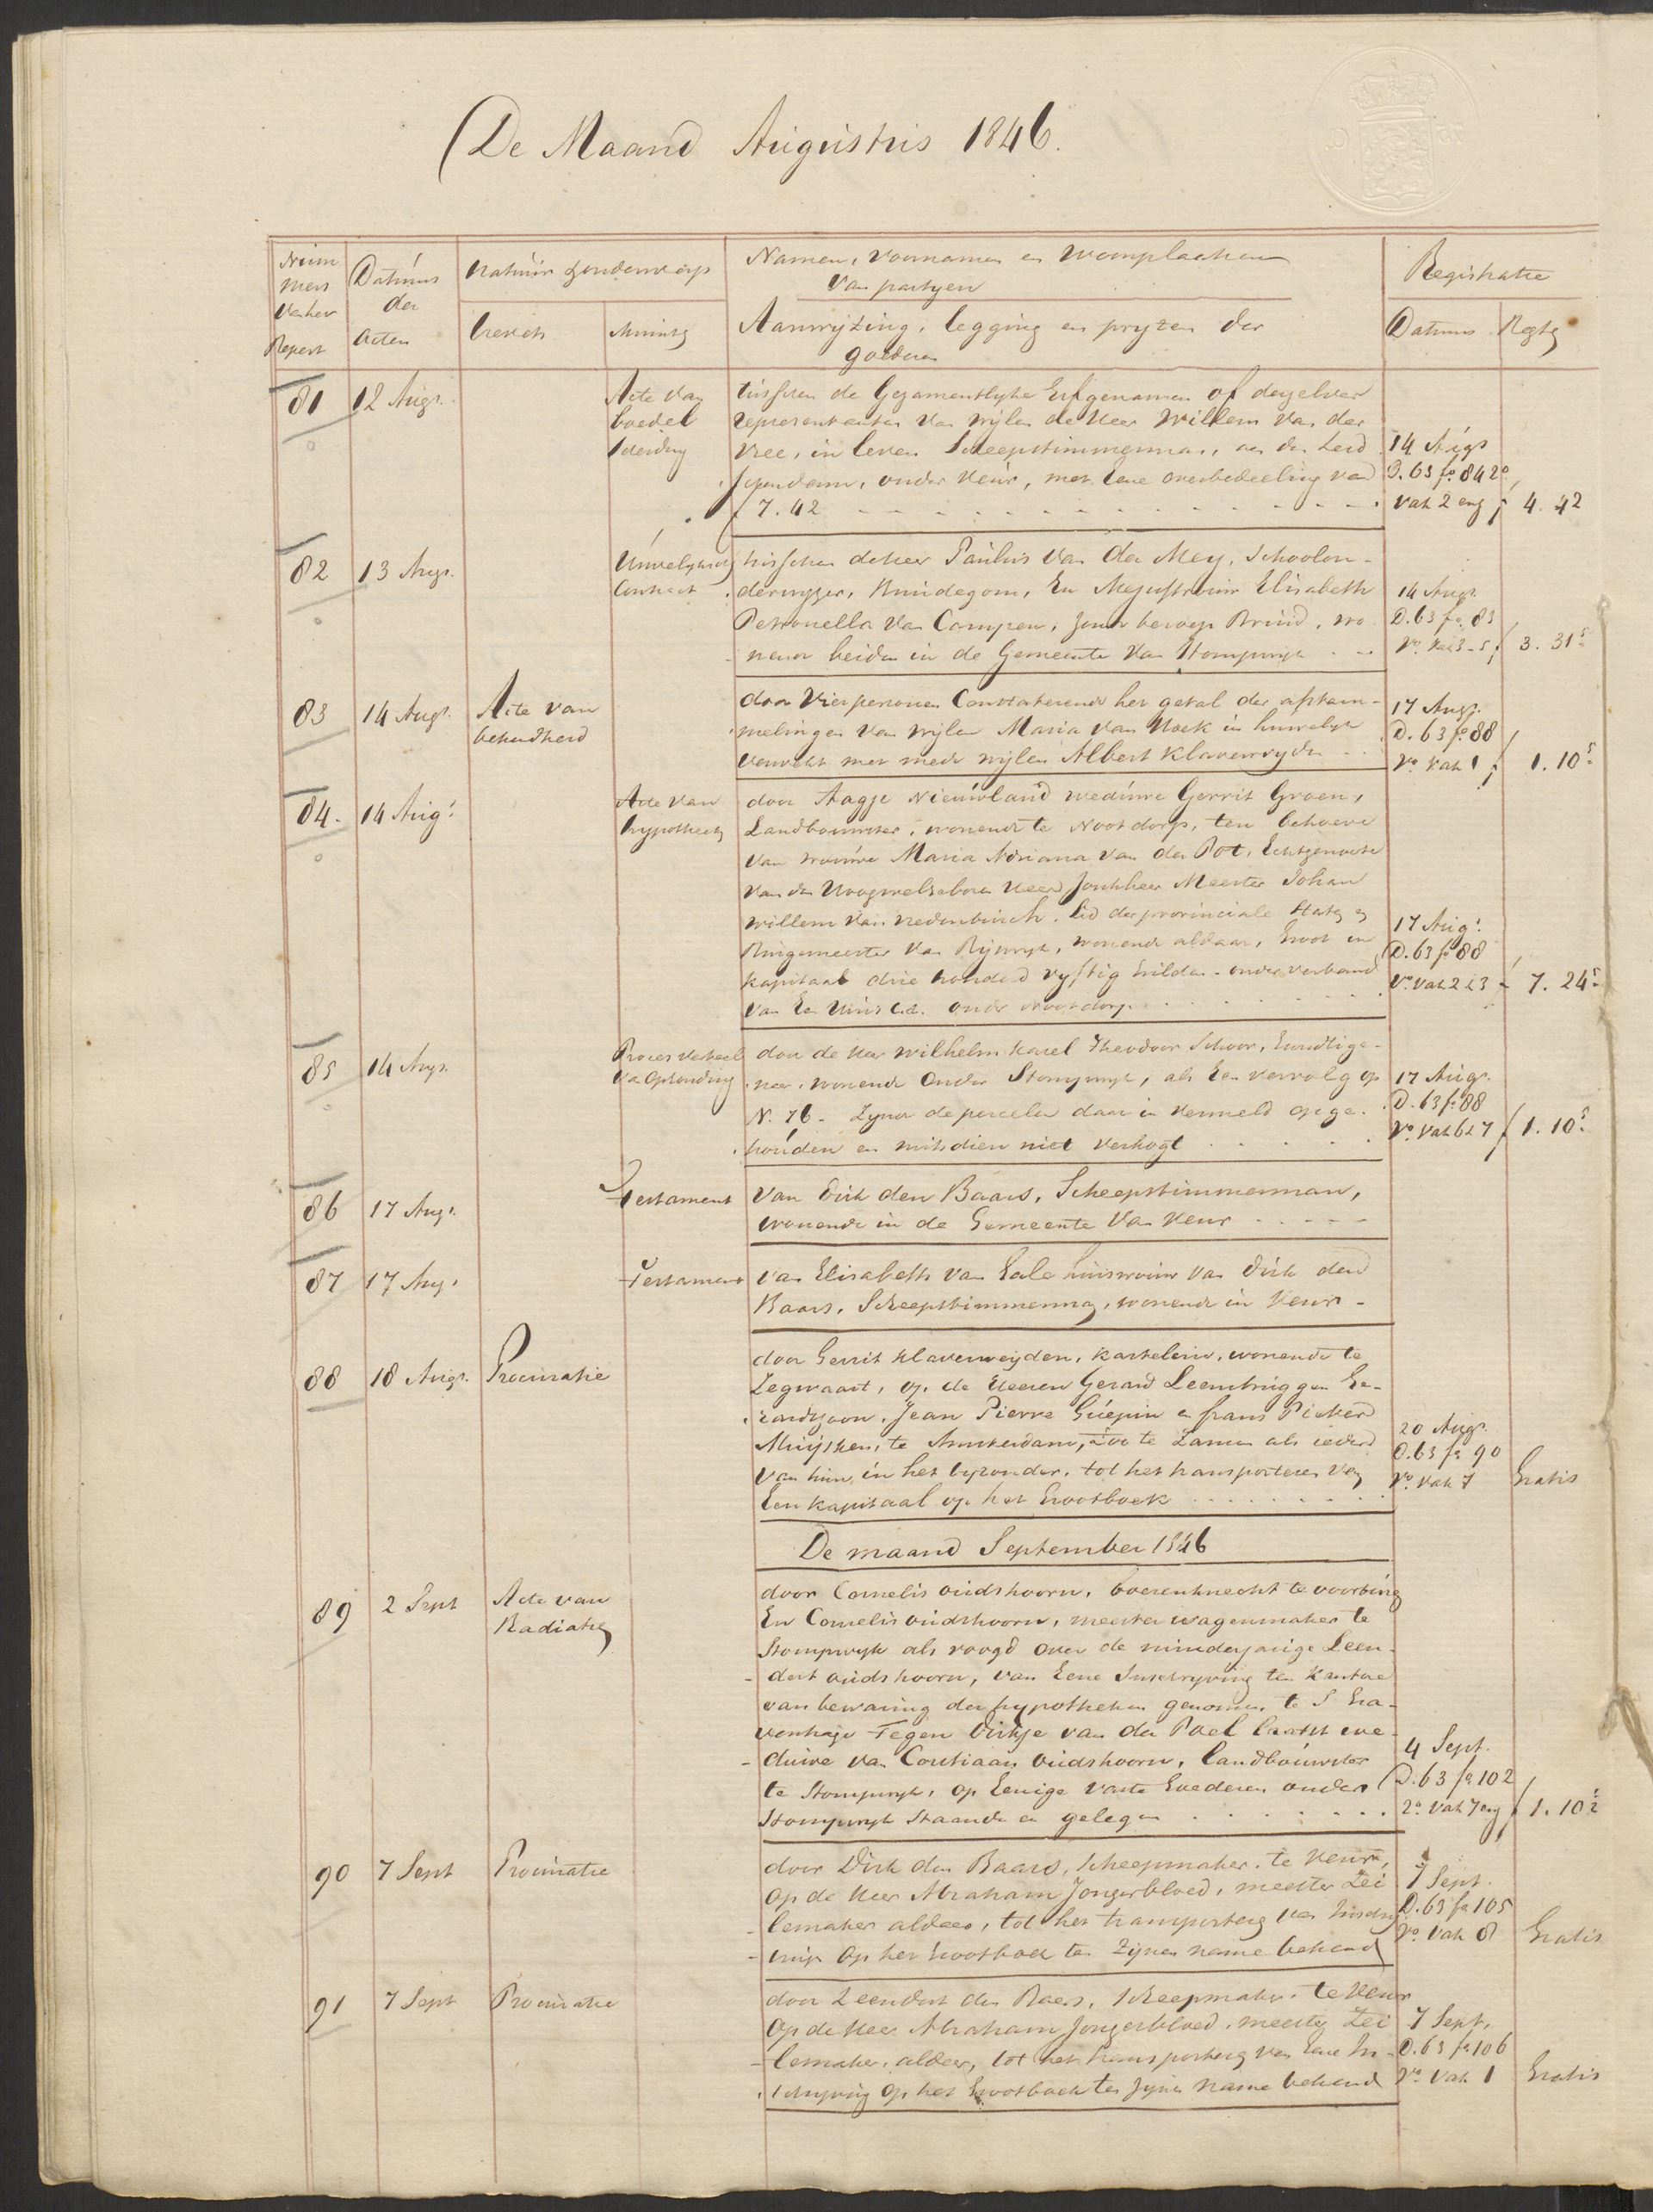 De Maand Augustus 1846.
Num
mers
van het
Repert
Datums
der
Acten
Natuur & onderwerp
brevets
Minuts
Namen, Voornamen en Woonplaatsen
Van partyen
Aanwyzing, legging en pryzen der
goederen
Registratie
Datums
Regtn
81 12 Augs.
Acte Van
boedel
scheiding
tusschen de Gezamentlyke Erfgenamen of derzelver
representanten Van wylen de Heer Willem Van der
Vree, in leven Scheepstimmerman, aan den Leid
schendam, onder Veur, met eene overbedeeling van
f 7.42
14 Augs
D. 63 fo. 84 2o
Vak 2 en f 4.42
82 13 Augs.
Huwelyks
Contract
tusschen de Heer Paulus Van der Mey, Schoolon-
derwyzer, Bruidegom, En Mejufvrouw Elisabeth
Petronella Van Campen, zonder beroep Bruid, wo-
nende beiden in de Gemeente Van Stompwyk
14 Augs.
D. 63 fo. 85
Vo. Vak 3-5 f 3.31 5
83 14 Augs.
Acte van
bekendheid
door Vier personen Constaterende het getal der afstam-
melingen Van wylen Maria Van Hoek in huwelyk
verwekt met mede wylen Albert Klaverwyden
17 Augs.
D. 63 fo 88
Vo. Vak 1 f 1.10 5
84. 14 Augs
Acte van
hypotheek
door Aagje Nieuwland weduwe Gerrit Groen,
Landbouwster, wonende te Nootdorp, ten behoeve
Van vrouwe Maria Adriana Van der Pot, Echtgenoote
Van den Hoogwelgeboren Heer Jonkheer Meester Johan
Willem Van Vredenburch, Lid der provinciale Staten en
Burgemeester Van Ryswyk, wonende aldaar, Groot in
kapitaal drie honderd vyftig Gulden - onder verband
Van Een Huis c.a. onder Nootdorp
17 Augs
D. 63 fo 88
Vo. Vak 2 & 3 f 7.24 5
85 14 Augs.
Proces Verbaal
Van Ophouding
door de Heer Wilhelm Karel Theodoor Schoor, Grondeige-
naar, wonende Onder Stompwyk, als Een vervolg op
N. 76 - Zynde de percelen daar in Vermeld opge-
houden en mitsdien niet Verkogt
17 Augs.
D. 63 fo 88
Vo. Vak 6 & 7 f 1.10 5
86 17 Augs.
Testament
Van Dirk den Baars, Scheepstimmerman,
wonende in de Gemeente Van Veur
87 17 Augs.
Testament
Van Elisabeth Van Eale huisvrouw Van Dirk den
Baars, Scheepstimmerman, wonende in Veur -
88 18 Augs.
Procuratie
door Gerrit Klaverweyden, kastelein, wonende te
Zegwaart, op de Heeren Gerard Leembruggen Ge-
rardszoon, Jean Pierre Guépin en frans Picker
Muijsken, te Amsterdam, zoo te Zamen als ieder
Van hun in het byzonder, tot het transporteren Van
Een kapitaal op het Grootboek
20 Augs.
D. 63 fo 90
Vo. Vak 7 Gratis
De maand September 1846
89 2 Sept
Acte van
Radiatie
door Cornelis oudshoorn, boerenknecht te voorburg
En Cornelis oudshoorn, meester wagenmaker te
Stompwyk als voogd Over de minderjarige Leen-
dert oudshoorn, van Eene Inschryving ten kantore
van bewaring der hypotheken genomen te S Gra-
venhage Tegen Dirkje van der Poel laatst we-
duwe van Coustiaan oudshoorn, Landbouwster
te Stompwyk, Op Eenige Vaste Goederen onder
Stompwyk Staande en gelegen
4 Sept.
D. 63 fo 102
2o. Vak 7 en f 1.10 5
90 7 Sept
Procuratie
door Dirk den Baars, Scheepmaker te Veur,
Op de Heer Abraham Jongerbloed, meester Zei
lemaker aldaar, tot het transportering Van Inschry-
ving Op het Grootboek ten Zynen name bekend
7 Sept.
D. 63 fo 105
Vo. Vak 8 Gratis
91 7 Sept
Procuratie
door Leendert den Baars, Scheepmaker te Veur
Op de Heer Abraham Jongerbloed, meester Zei
lemaker, aldaar, tot het transportering Van Eene In-
schryving Op het Grootboek ten zynen name bekend
7 Sept.
D. 63 fo 106
Vo. Vak 1 Gratis